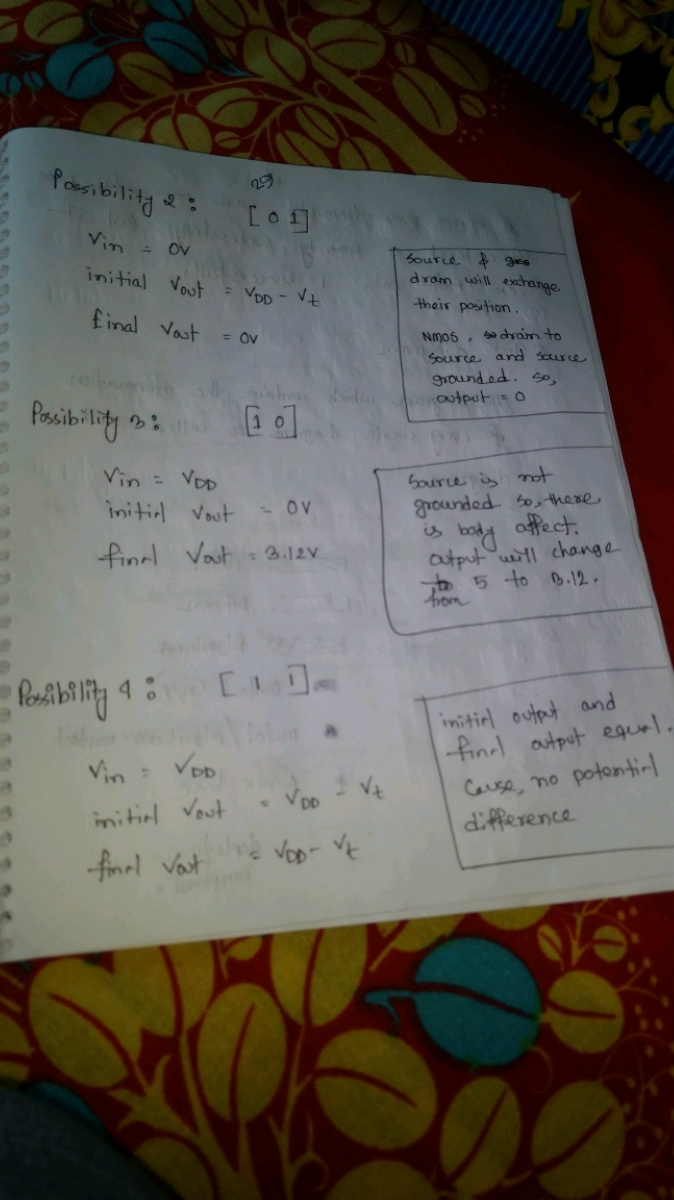 29
Possibility 2 : [0 1]
Vin = 0V
initial Vout = VDD - Vt
final Vout = 0V
source &
drain will exchange
their position.
NMOS, drain to
source and source
grounded. so,
output = 0
Possibility 3 : [1 0]
Vin = VDD
initial Vout = 0V
final Vout = 3.12V
source is not
grounded so, there
is body affect.
output will change
from 5 to 3.12.
Possibility 4 : [1 1]
Vin = VDD
initial Vout = VDD - Vt
final Vout = VDD - Vt
initial output and
final output equal.
Cause, no potential
difference